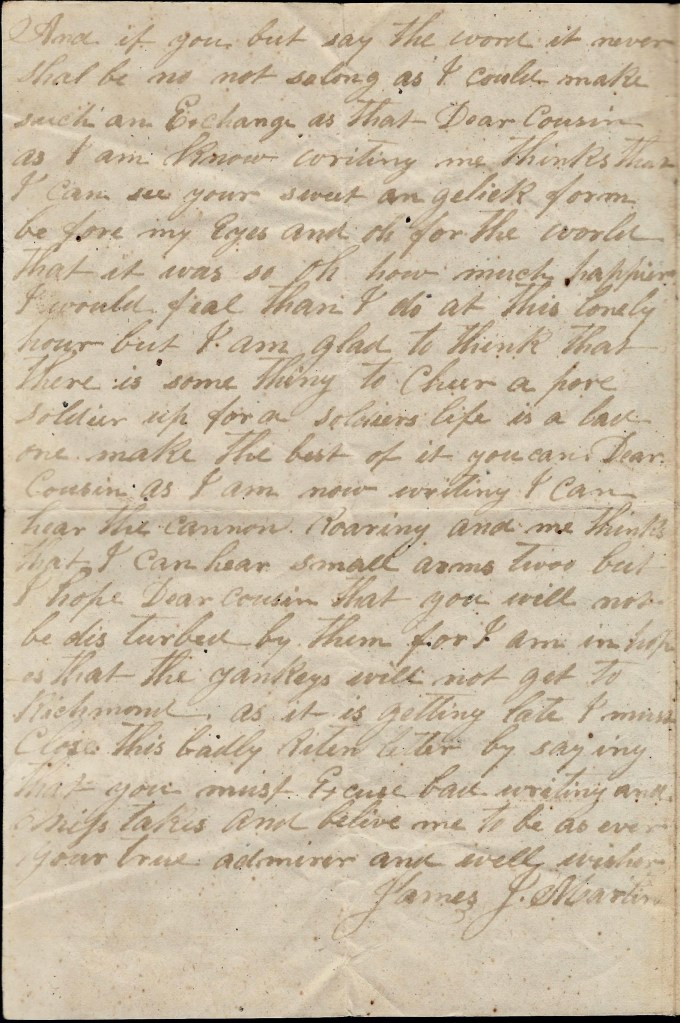 And if you but say the word it never
shal be no not solong as I could make
such an Exchange as that Dear Cousin
as I am know writing me thinks that
I can see your sweet an gelick form
be fore my Eyes and oh for the world
that it was so oh how much happier
I would feal than I do at this lonely
hour but I am glad to think that
there is some thing to Cheer a pore
soldier up for a soldiers life is a bad
one make the best of it you can Dear
Cousin as I am now writing I can
hear the cannon Roaring and me thinks
that I can hear small arms twoo but
I hope Dear cousin that you will not
be dis turbed by them for I am in hop
es that the yankeys will not get to
Richmond as it is getting late I must
Close this badly Riten leter by say ing
that you must Excuse bad writing and
miss takes and belive me to be as ever
your true admirer and well wisher
James J. Martin